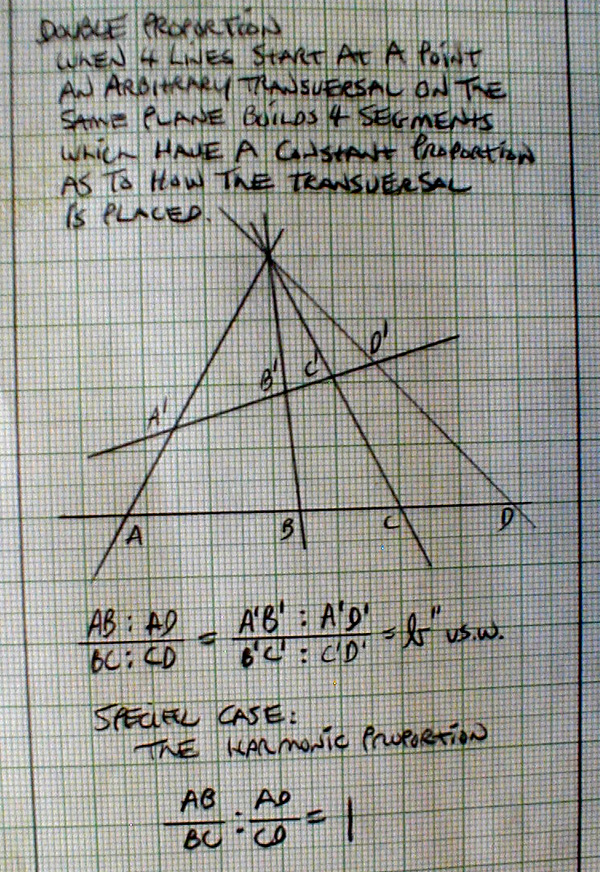 DOUBLE PROPORTION
WHEN 4 LINES START AT A POINT
AN ARBITRARY TRANSVERSAL ON THE
SAME PLANE BUILDS 4 SEGMENTS
WHICH HAVE A CONSTANT PROPORTION
AS TO HOW THE TRANSVERSAL
IS PLACED.
A' B' C' D'
A B C D
AB : AD / BC : CD = A'B' : A'D' / B'C' : C'D' = b" usw.
SPECIEL CASE:
THE HARMONIC PROPORTION
AB / BC : AD / CD = 1